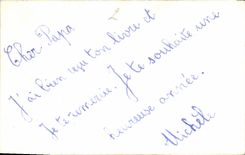 Cher Papa
J'ai bien reçu ton livre et
je t'remercie. Je te souhaite une
heureuse année.
Michèle